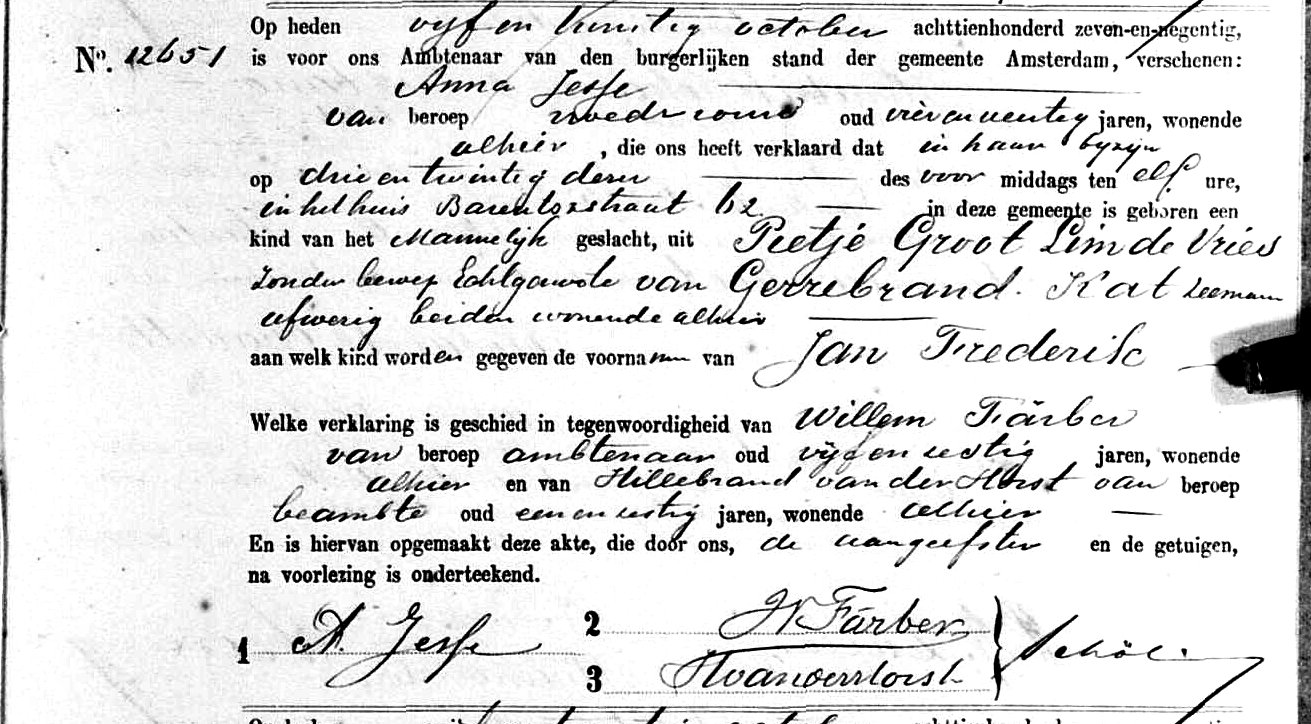 Op heden vijf en twintig october achttienhonderd zeven-en-negentig,
No. 12651 is voor ons Ambtenaar van den burgerlijken stand der gemeente Amsterdam, verschenen:
Anna Jesse
van beroep vroedvrouw oud vierenveertig jaren, wonende
alhier, die ons heeft verklaard dat in haar byzyn
op drie en twintig dezer des voor middags ten elf ure,
in het huis Barentszstraat 62 in deze gemeente is geboren een
kind van het Mannelijk geslacht, uit Pietje Groot Lim de Vries
Zonder beroep Echtgenoote van Gerrebrand Kat Zeeman
afwezig beiden wonende alhier
aan welk kind worden gegeven de voornamen van Jan Frederik
Welke verklaring is geschied in tegenwoordigheid van Willem Färber
van beroep ambtenaar oud vijf en zestig jaren, wonende
alhier en van Hillebrand van der Horst van beroep
beambte oud een en zestig jaren, wonende alhier
En is hiervan opgemaakt deze akte, die door ons, de aangeefster en de getuigen,
na voorlezing is onderteekend.
1 A. Jesse 2 W Färber
3 H van der Horst